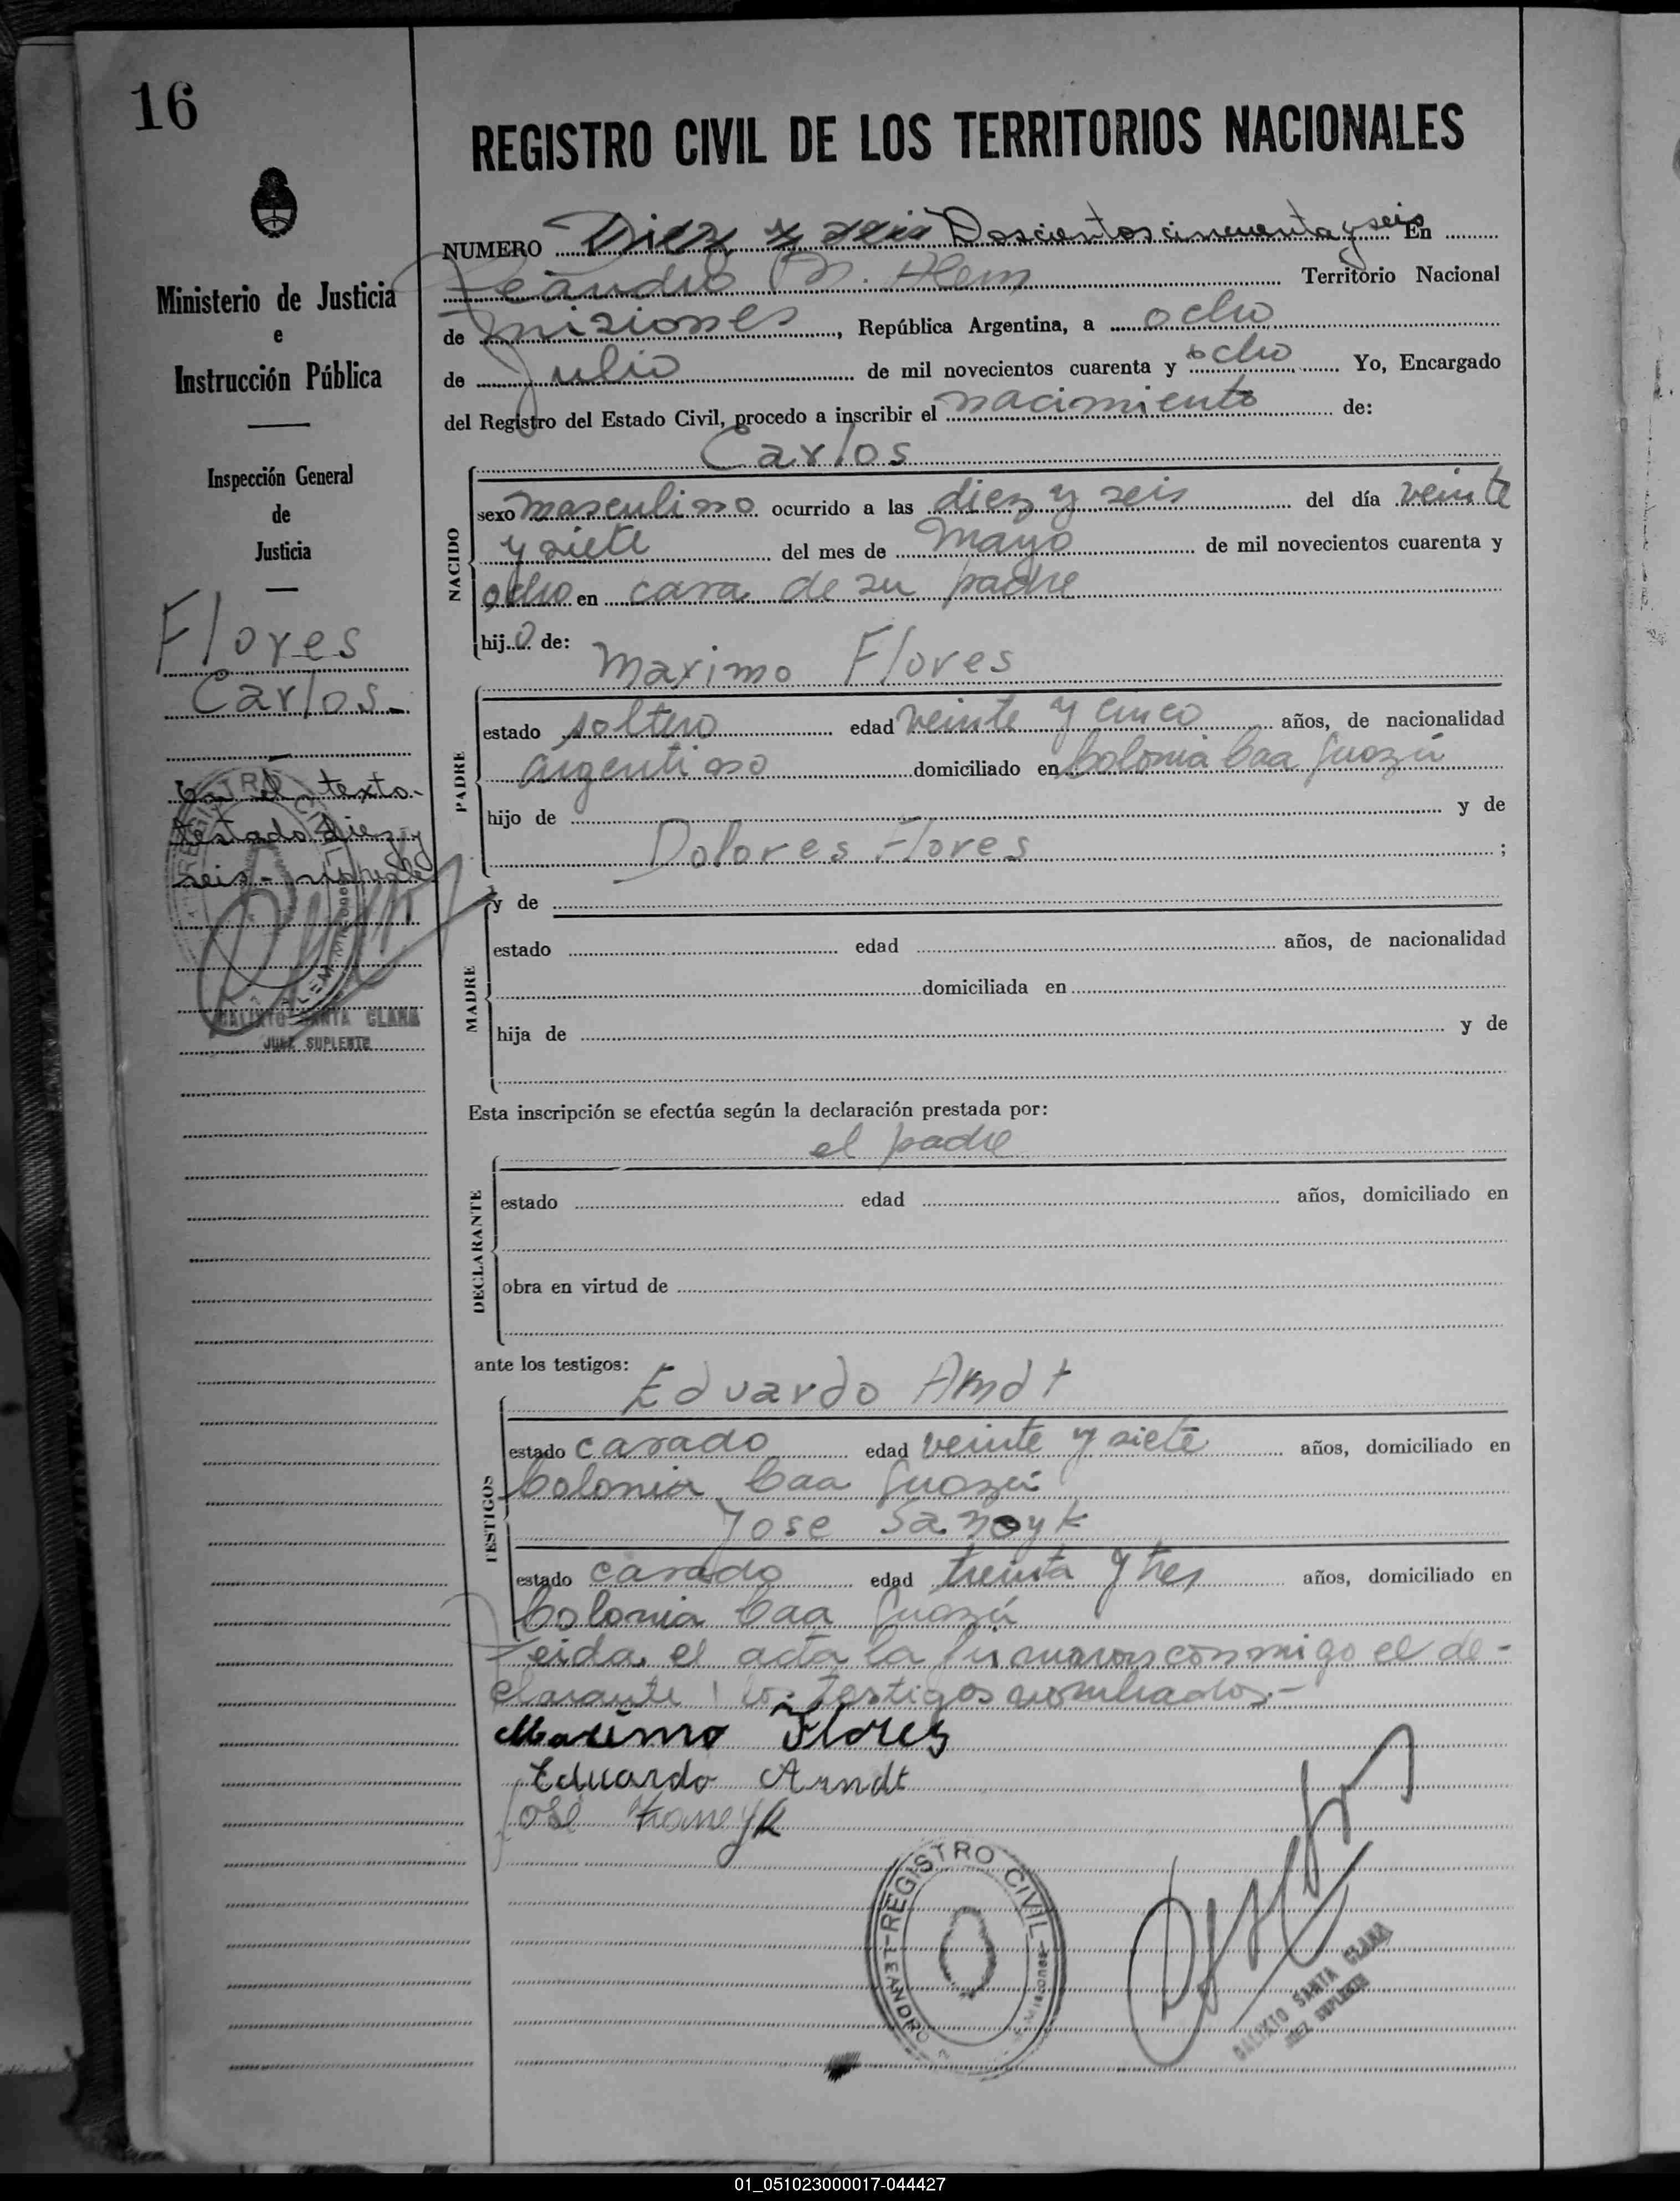 16
REGISTRO CIVIL DE LOS TERRITORIOS NACIONALES
NUMERO Diez y seis Doscientos cincuenta y seis En
Leandro N. Alem Territorio Nacional
de Misiones, República Argentina, a ocho
de Julio de mil novecientos cuarenta y ocho Yo, Encargado
del Registro del Estado Civil, procedo a inscribir el nacimiento de:
Carlos
Ministerio de Justicia
e
Instrucción Pública
Inspección General
de
Justicia
Flores
Carlos.-
En el texto.-
testado diez y
seis-
CALIXTO SANTA CLARA
JUEZ SUPLENTE
NACIDO
sexo masculino ocurrido a las diez y seis del día veinte
y siete del mes de Mayo de mil novecientos cuarenta y
ocho en casa de su padre
hijo de:
Maximo Flores
PADRE
estado soltero edad veinte y cinco años, de nacionalidad
argentino domiciliado en Colonia Caa Guazú
hijo de y de
Dolores Flores ;
y de
MADRE
estado edad años, de nacionalidad
domiciliada en
hija de y de
Esta inscripción se efectúa según la declaración prestada por:
el padre
DECLARANTE
estado edad años, domiciliado en
obra en virtud de
ante los testigos:
Eduardo Arndt
TESTIGOS
estado casado edad veinte y siete años, domiciliado en
Colonia Caa Guazú
Jose
estado casado edad treinta y tres años, domiciliado en
Colonia Caa Guazú
Leida el acta la firmaron conmigo el de-
clarante i los testigos nombrados.-
Maximo Flores
Eduardo Arndt
José
REGISTRO CIVIL
LEANDRO
Misiones
CALIXTO SANTA CLARA
JUEZ SUPLENTE
01_051023000017-044427